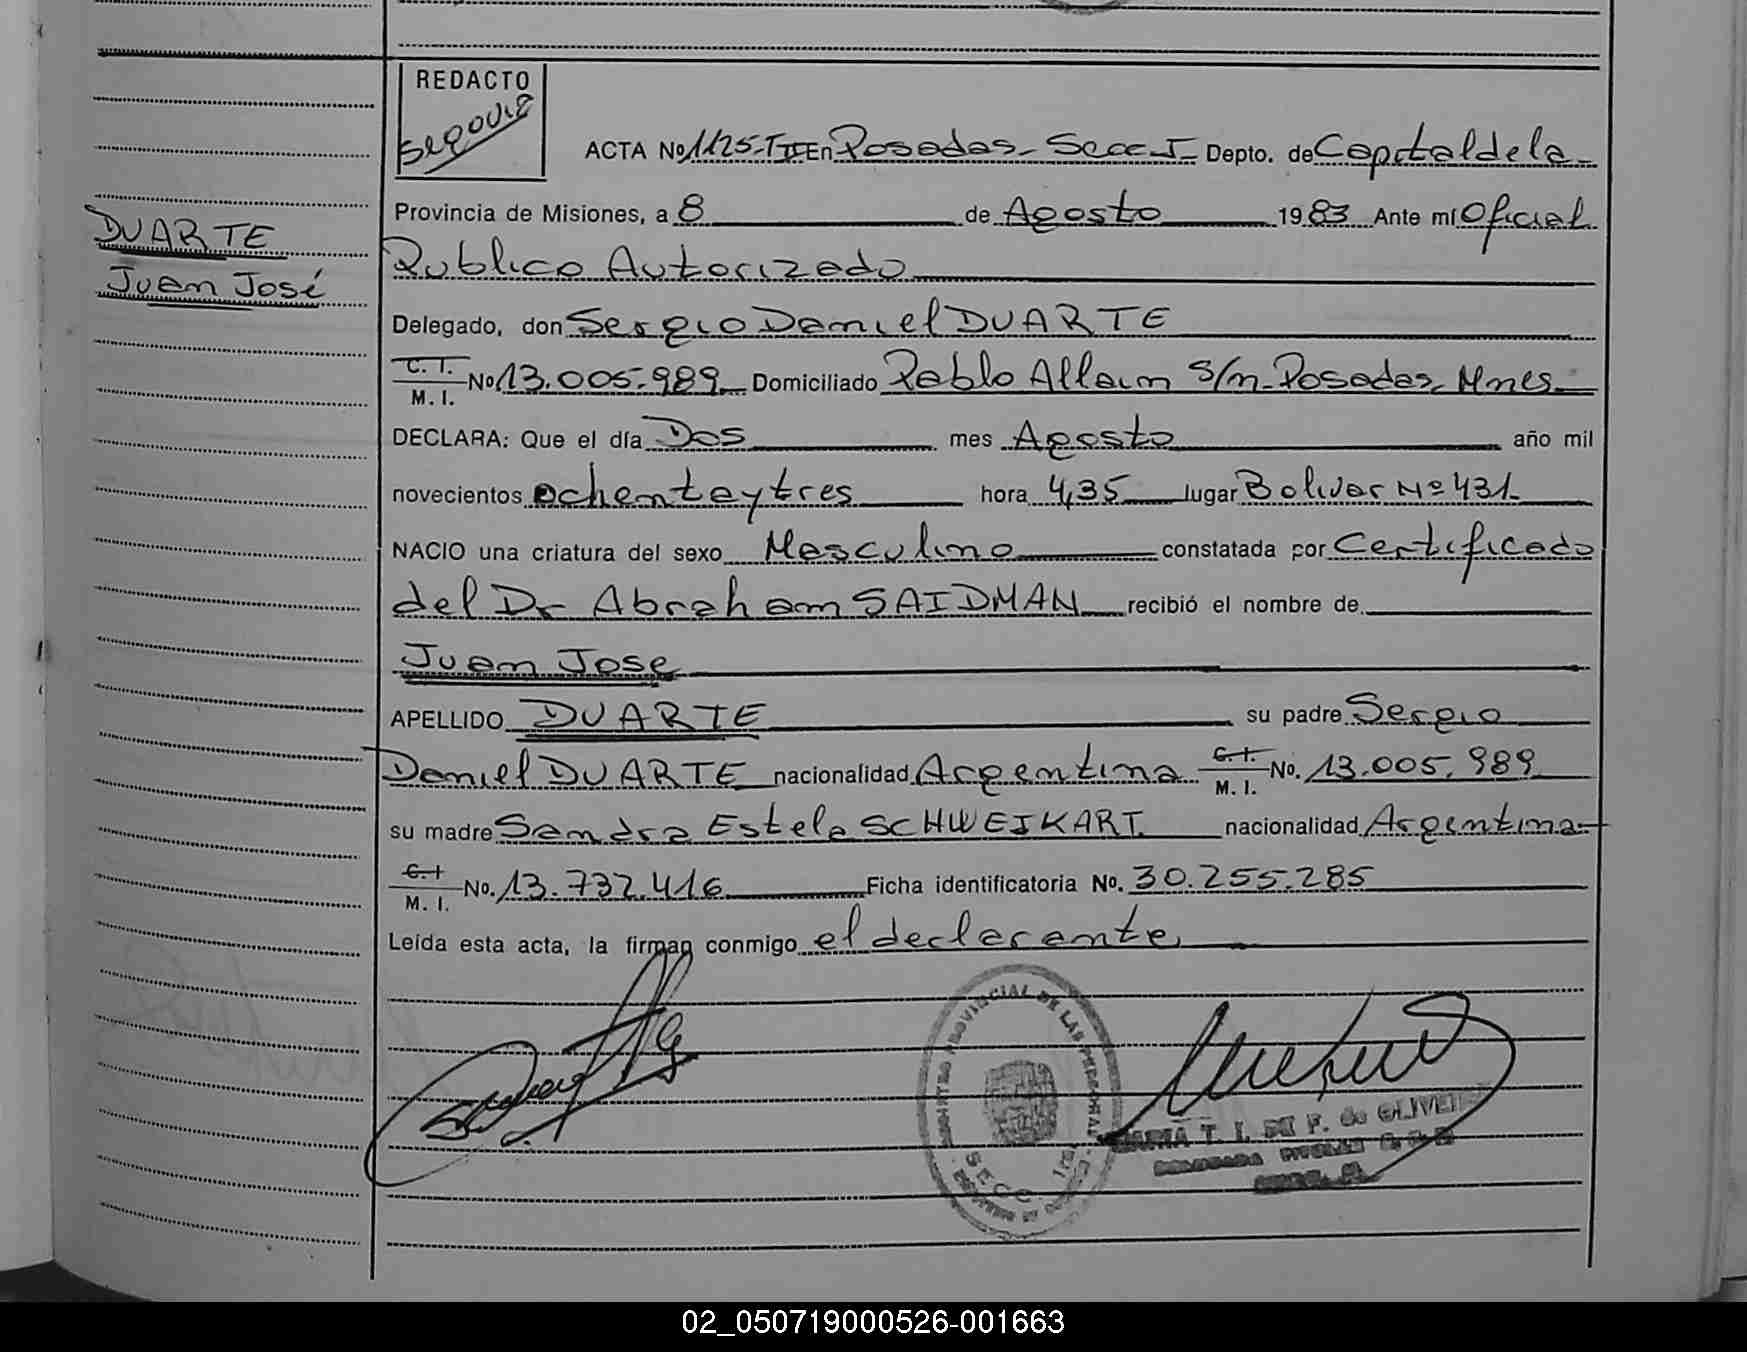 REDACTO
Segovia
ACTA No 1125-TIII En Posadas- Secc I- Depto. de Capital de la-
Provincia de Misiones, a 8 de Agosto 1983 Ante mí Oficial
DUARTE
Juan José
Publico Autorizado
Delegado, don Sergio Daniel DUARTE
C. I. M. I. No 13.005.989 Domiciliado Pablo Allain s/n-Posadas, Mnes.
DECLARA: Que el día Dos mes Agosto año mil
novecientos ochentaytres hora 4,35 lugar Bolivar Nº 431.
NACIO una criatura del sexo Masculino constatada por Certificado
del Dr Abraham SAIDMAN recibió el nombre de
Juan Jose
APELLIDO DUARTE su padre Sergio
Daniel DUARTE nacionalidad Argentina C. I. M. I. No. 13.005.989
su madre Sandra Estela SCHWEIKART. nacionalidad Argentina-
C. I M. I. No. 13.732.416 Ficha identificatoria No. 30.255.285
Leída esta acta, la firman conmigo el declarante,
REGISTRO PROVINCIAL DE LAS PERSONAS
SECC. 1ra
MARIA T. I. DE F. de OLIVEI
DELEGADA TITULAR
02_050719000526-001663